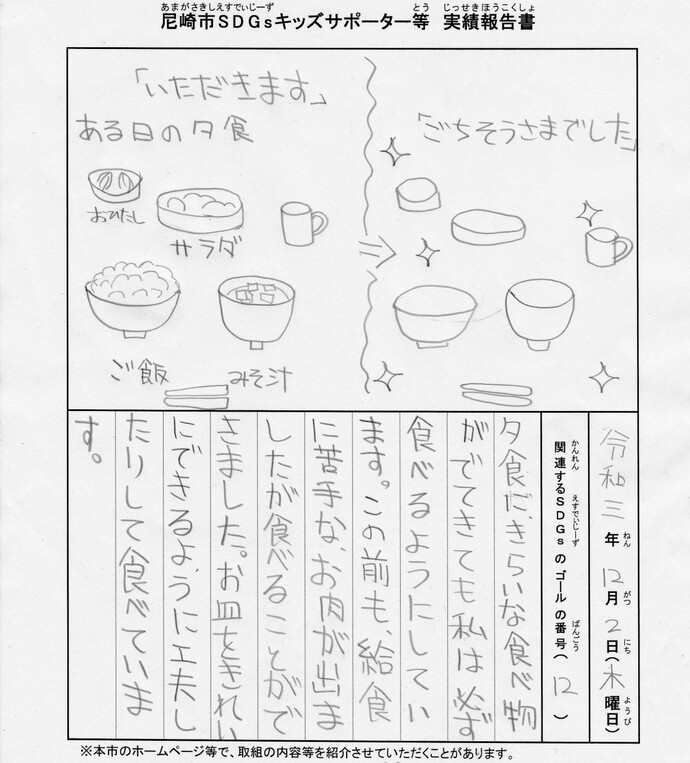 あまがさきしえすでぃじーず とう じっせきほうこくしょ
尼崎市SDGsキッズサポーター等 実績報告書
「いただきます」
ある日の夕食
おひたし
サラダ
ご飯
みそ汁
「ごちそうさまでした」
令和三年12月2日(木曜日)
ねん がつ にち ようび
関連するSDGsのゴールの番号(12)
かんれん えすでぃじーず ばんごう
夕食だきらいな食べ物
がでてきても私は必ず
食べるようにしてい
ます。この前も、給食
に苦手な、お肉が出ま
したが食べることがで
きました。お皿をきれい
にできるように工夫し
たりして食べていま
す。
※本市のホームページ等で、取組の内容等を紹介させていただくことがあります。